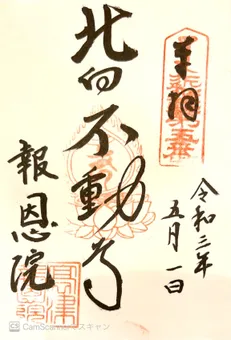 奉拝
令和三年
五月一日
北向不動尊
報恩院
CamScannerでスキャン